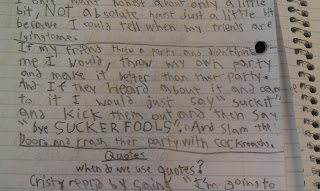 I only want honest about only a little
bit, NOT absolute honest just a little bit
because I could tell when my friends are
lying to me.
If my friend threw a party and didn't invite
me I would, throw my own party
and make it better than their party.
And If they heard about it and came
to it I would just say "suck it"
and kick them out and then say
"bye SUCKERFOOLS". And slam the
Door and crash their party with cockroachs.
Quotes
when do we use quotes?
Cristy replied by going "I'm going to